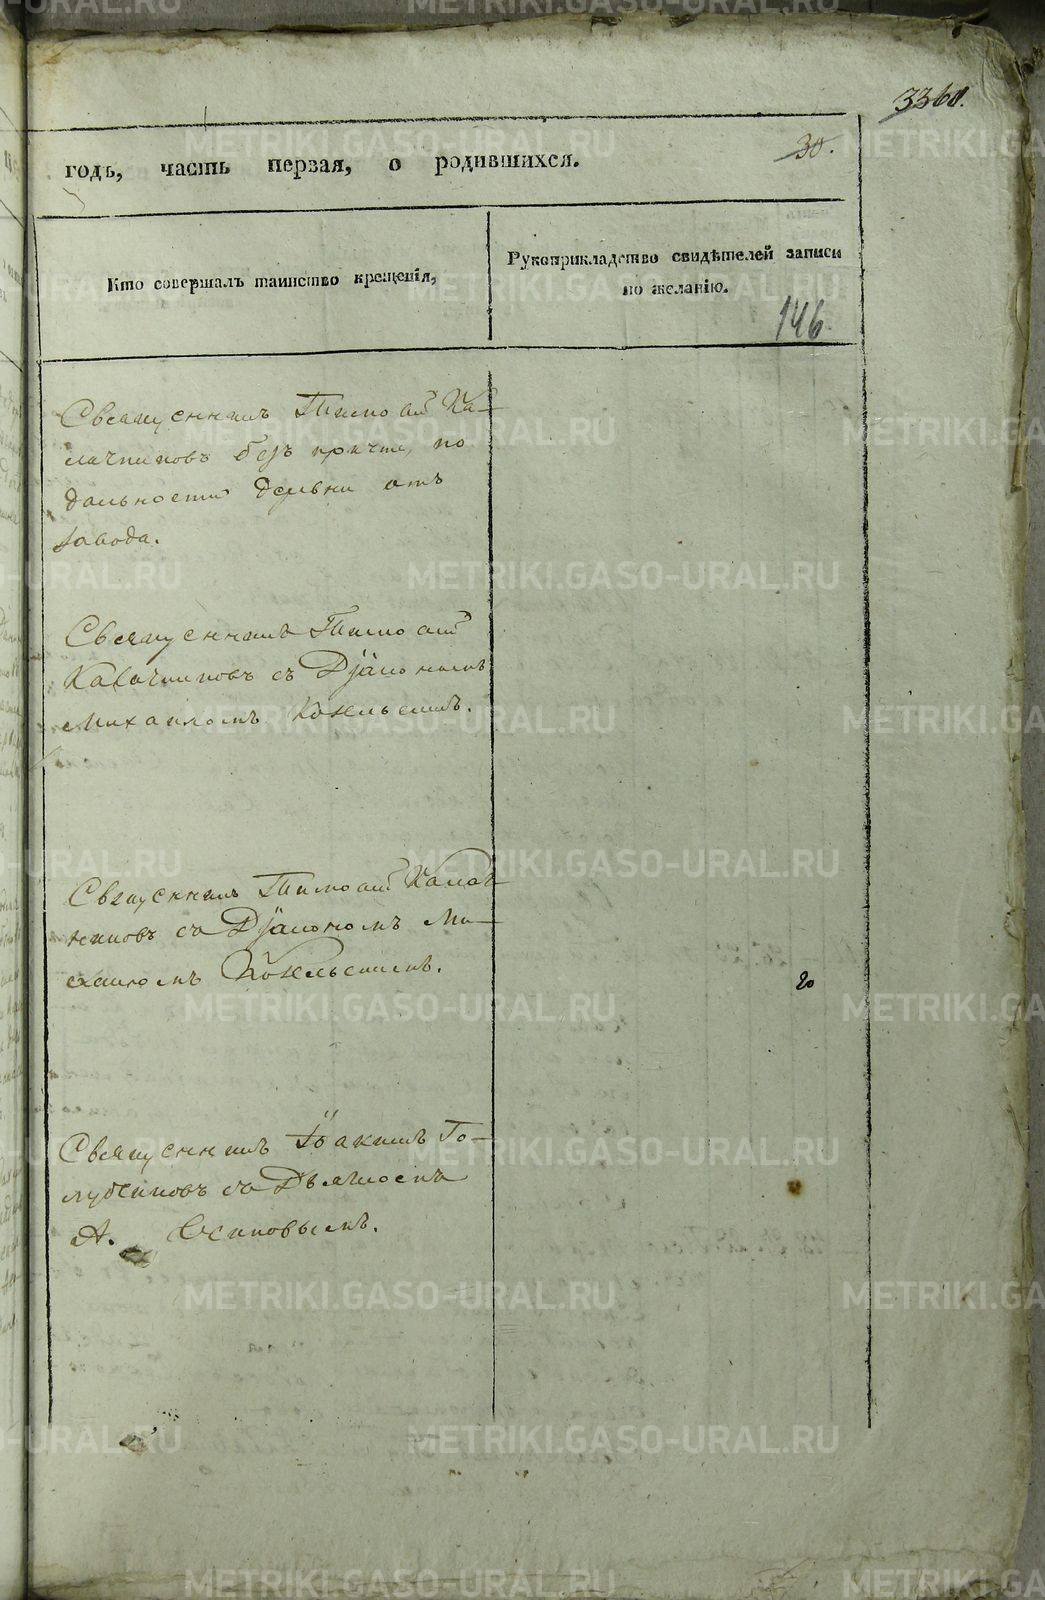 3360.
30.
годъ, часть первая, о родившихся.
Кто совершалъ таинство крещенія,
Рукоприкладство свидѣтелей записи
по желанію.
146
Священникъ Тимоѳей Ка-
лачниковъ безъ причта, по
дальности деревни отъ
завода.
Священникъ Тимоѳей
Калачниковъ съ Дьякономъ
Михаиломъ
Священникъ Тимоѳей Калач-
никовъ съ Дьякономъ Ми-
хаиломъ
20
Священникъ Іоакимъ Го-
лубчиковъ съ Дьячкомъ
А. Осиповымъ.
METRIKI.GASO-URAL.RU